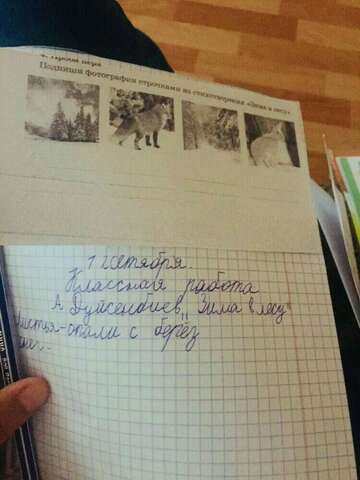 Подпиши фотографии строчками из стихотворения «Зима в лесу».
1 2сентября.
Классная работа
А. Дуйсенбиев „Зима в лесу"
Листья опали с берёз